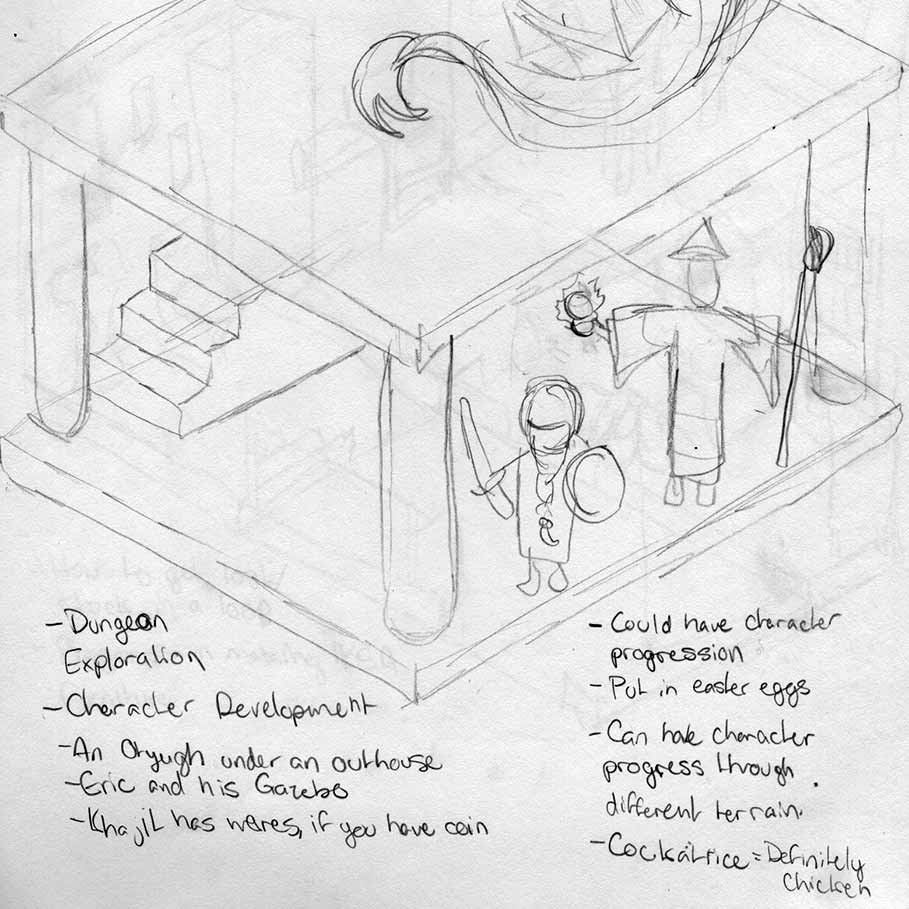 - Dungeon
Exploration
- Character Development
- An Otyugh under an outhouse
- Eric and his Gazebo
- Khajit has wares, if you have coin
- Could have character
progression
- Put in easter eggs
- Can have character
progress through
different terrain.
- Cockatrice = Definitely
Chicken